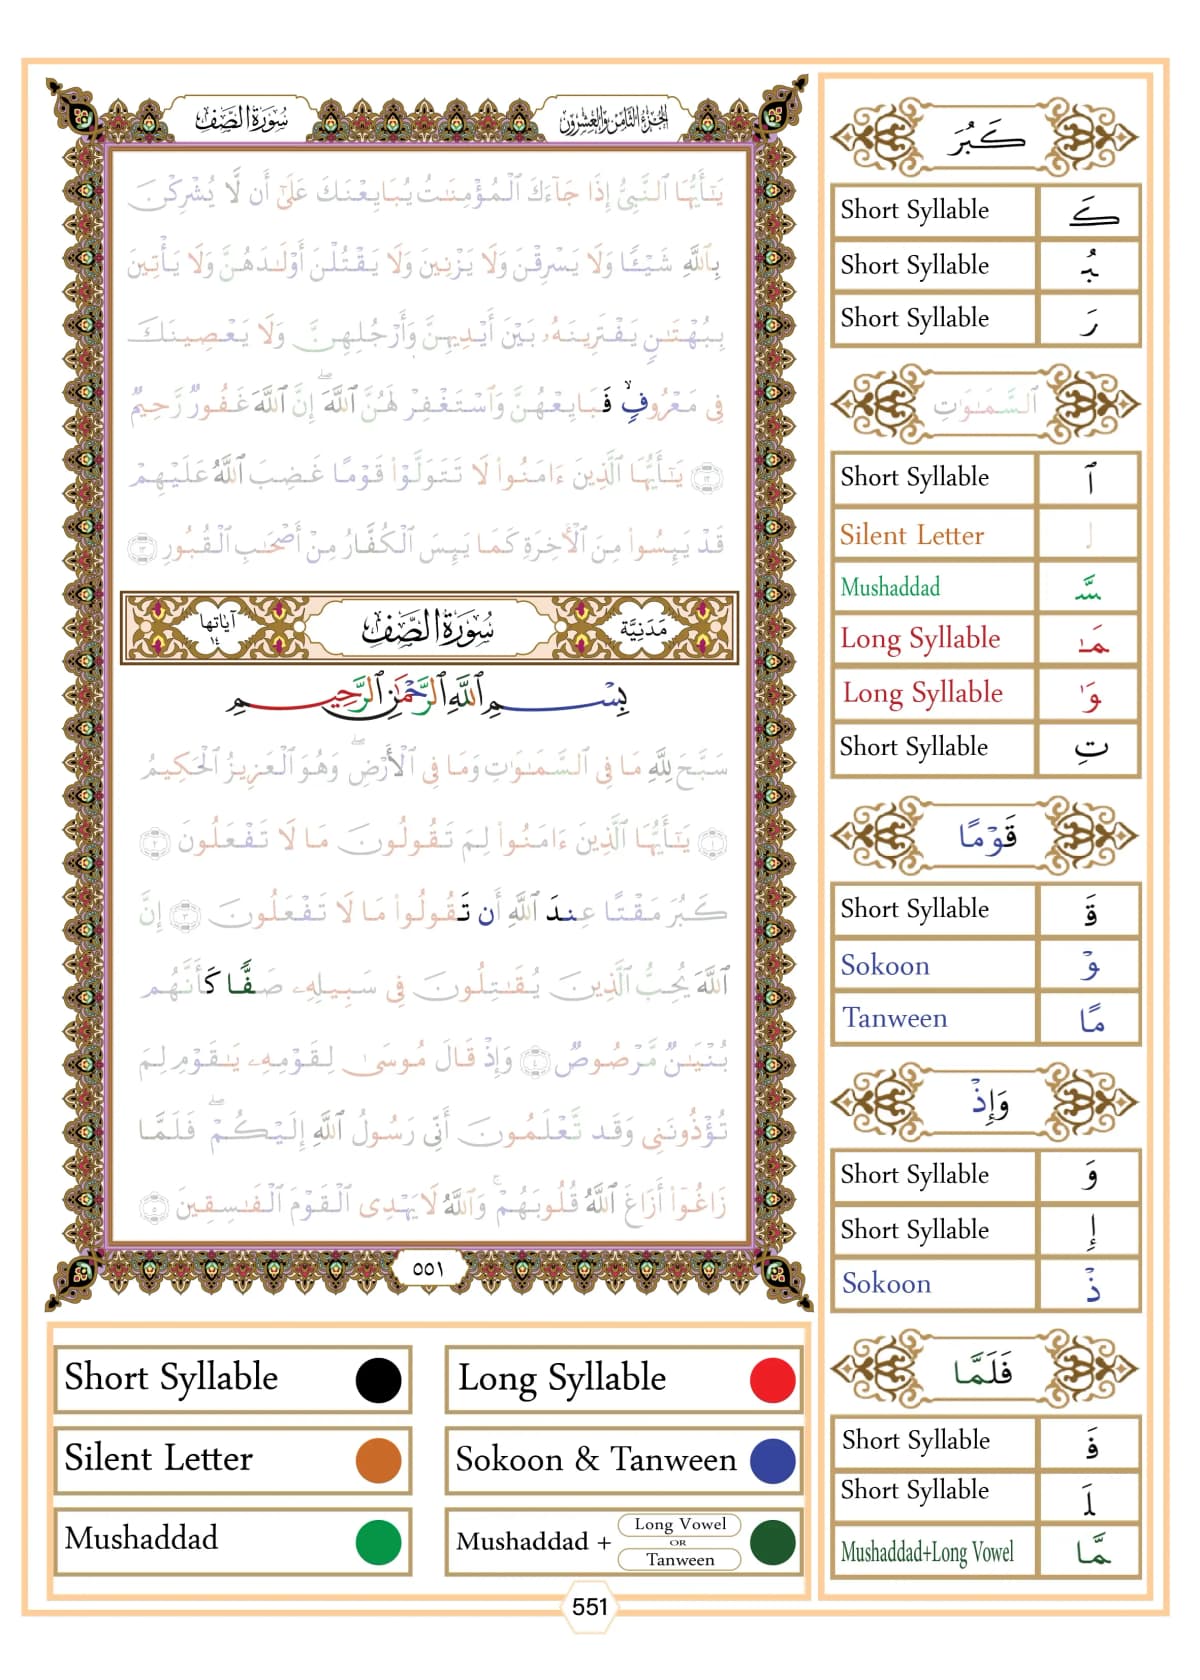 سُورَةُ الصَّفِّ
الجُزْءُ الثَّامِنُ وَالعِشْرُونَ
يَـٰٓأَيُّهَا ٱلنَّبِىُّ إِذَا جَآءَكَ ٱلْمُؤْمِنَـٰتُ يُبَايِعْنَكَ عَلَىٰٓ أَن لَّا يُشْرِكْنَ
بِٱللَّهِ شَيْـًٔا وَلَا يَسْرِقْنَ وَلَا يَزْنِينَ وَلَا يَقْتُلْنَ أَوْلَـٰدَهُنَّ وَلَا يَأْتِينَ
بِبُهْتَـٰنٍ يَفْتَرِينَهُۥ بَيْنَ أَيْدِيهِنَّ وَأَرْجُلِهِنَّ وَلَا يَعْصِينَكَ
فِى مَعْرُوفٍ ۙ فَبَايِعْهُنَّ وَٱسْتَغْفِرْ لَهُنَّ ٱللَّهَ ۖ إِنَّ ٱللَّهَ غَفُورٌ رَّحِيمٌ
١٢ يَـٰٓأَيُّهَا ٱلَّذِينَ ءَامَنُوا۟ لَا تَتَوَلَّوْا۟ قَوْمًا غَضِبَ ٱللَّهُ عَلَيْهِمْ
قَدْ يَئِسُوا۟ مِنَ ٱلْـَٔاخِرَةِ كَمَا يَئِسَ ٱلْكُفَّارُ مِنْ أَصْحَـٰبِ ٱلْقُبُورِ ١٣
مَدَنِيَّة سُورَةُ الصَّفِّ آيَاتُهَا ١٤
بِسْمِ ٱللَّهِ ٱلرَّحْمَـٰنِ ٱلرَّحِيمِ
سَبَّحَ لِلَّهِ مَا فِى ٱلسَّمَـٰوَٰتِ وَمَا فِى ٱلْأَرْضِ ۖ وَهُوَ ٱلْعَزِيزُ ٱلْحَكِيمُ
١ يَـٰٓأَيُّهَا ٱلَّذِينَ ءَامَنُوا۟ لِمَ تَقُولُونَ مَا لَا تَفْعَلُونَ ٢
كَبُرَ مَقْتًا عِندَ ٱللَّهِ أَن تَقُولُوا۟ مَا لَا تَفْعَلُونَ ٣ إِنَّ
ٱللَّهَ يُحِبُّ ٱلَّذِينَ يُقَـٰتِلُونَ فِى سَبِيلِهِۦ صَفًّا كَأَنَّهُم
بُنْيَـٰنٌ مَّرْصُوصٌ ٤ وَإِذْ قَالَ مُوسَىٰ لِقَوْمِهِۦ يَـٰقَوْمِ لِمَ
تُؤْذُونَنِى وَقَد تَّعْلَمُونَ أَنِّى رَسُولُ ٱللَّهِ إِلَيْكُمْ ۖ فَلَمَّا
زَاغُوٓا۟ أَزَاغَ ٱللَّهُ قُلُوبَهُمْ ۚ وَٱللَّهُ لَا يَهْدِى ٱلْقَوْمَ ٱلْفَـٰسِقِينَ ٥
٥٥١
كَبُرَ
Short Syllable كَ
Short Syllable بُ
Short Syllable رَ
ٱلسَّمَـٰوَٰتِ
Short Syllable ٱ
Silent Letter ل
Mushaddad سَّ
Long Syllable مَـٰ
Long Syllable وَٰ
Short Syllable تِ
قَوْمًا
Short Syllable قَ
Sokoon وْ
Tanween مًا
وَإِذْ
Short Syllable وَ
Short Syllable إِ
Sokoon ذْ
فَلَمَّا
Short Syllable فَ
Short Syllable لَ
Mushaddad+Long Vowel مَّا
Short Syllable
Long Syllable
Silent Letter
Sokoon & Tanween
Mushaddad
Mushaddad + Long Vowel OR Tanween
551